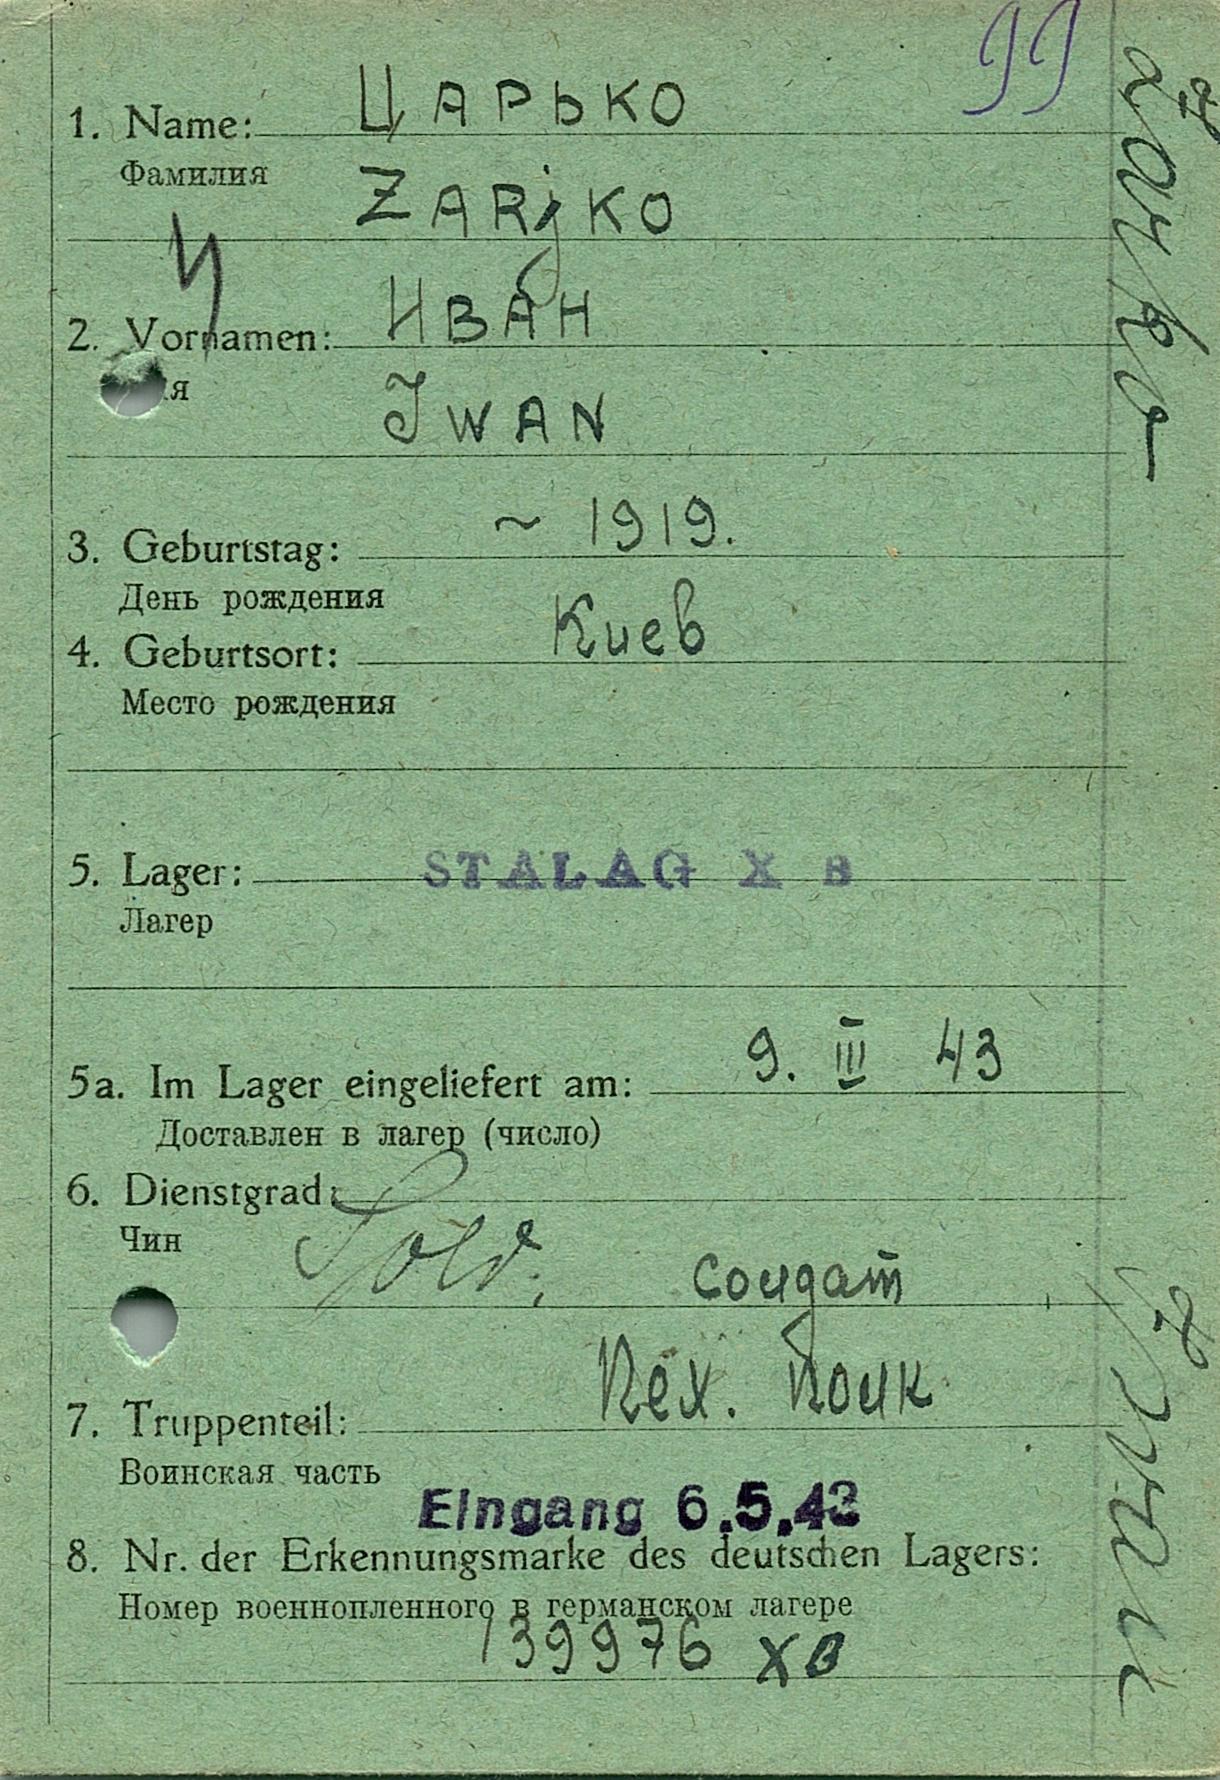 99
1. Name: ЦАРЬКО
Фамилия
ZARjKO
2. Vornamen: ИВАН
я
JWAN
3. Geburtstag: ~ 1919.
День рождения
4. Geburtsort: Киев
Место рождения
5. Lager: STALAG X B
Лагер
5a. Im Lager eingeliefert am: 9. III 43
Доставлен в лагер (число)
6. Dienstgrad:
Чин
Sold. солдат
7. Truppenteil: Пех. полк
Воинская часть
Eingang 6.5.43
8. Nr. der Erkennungsmarke des deutschen Lagers:
Номер военнопленного в германском лагере
139976 XB